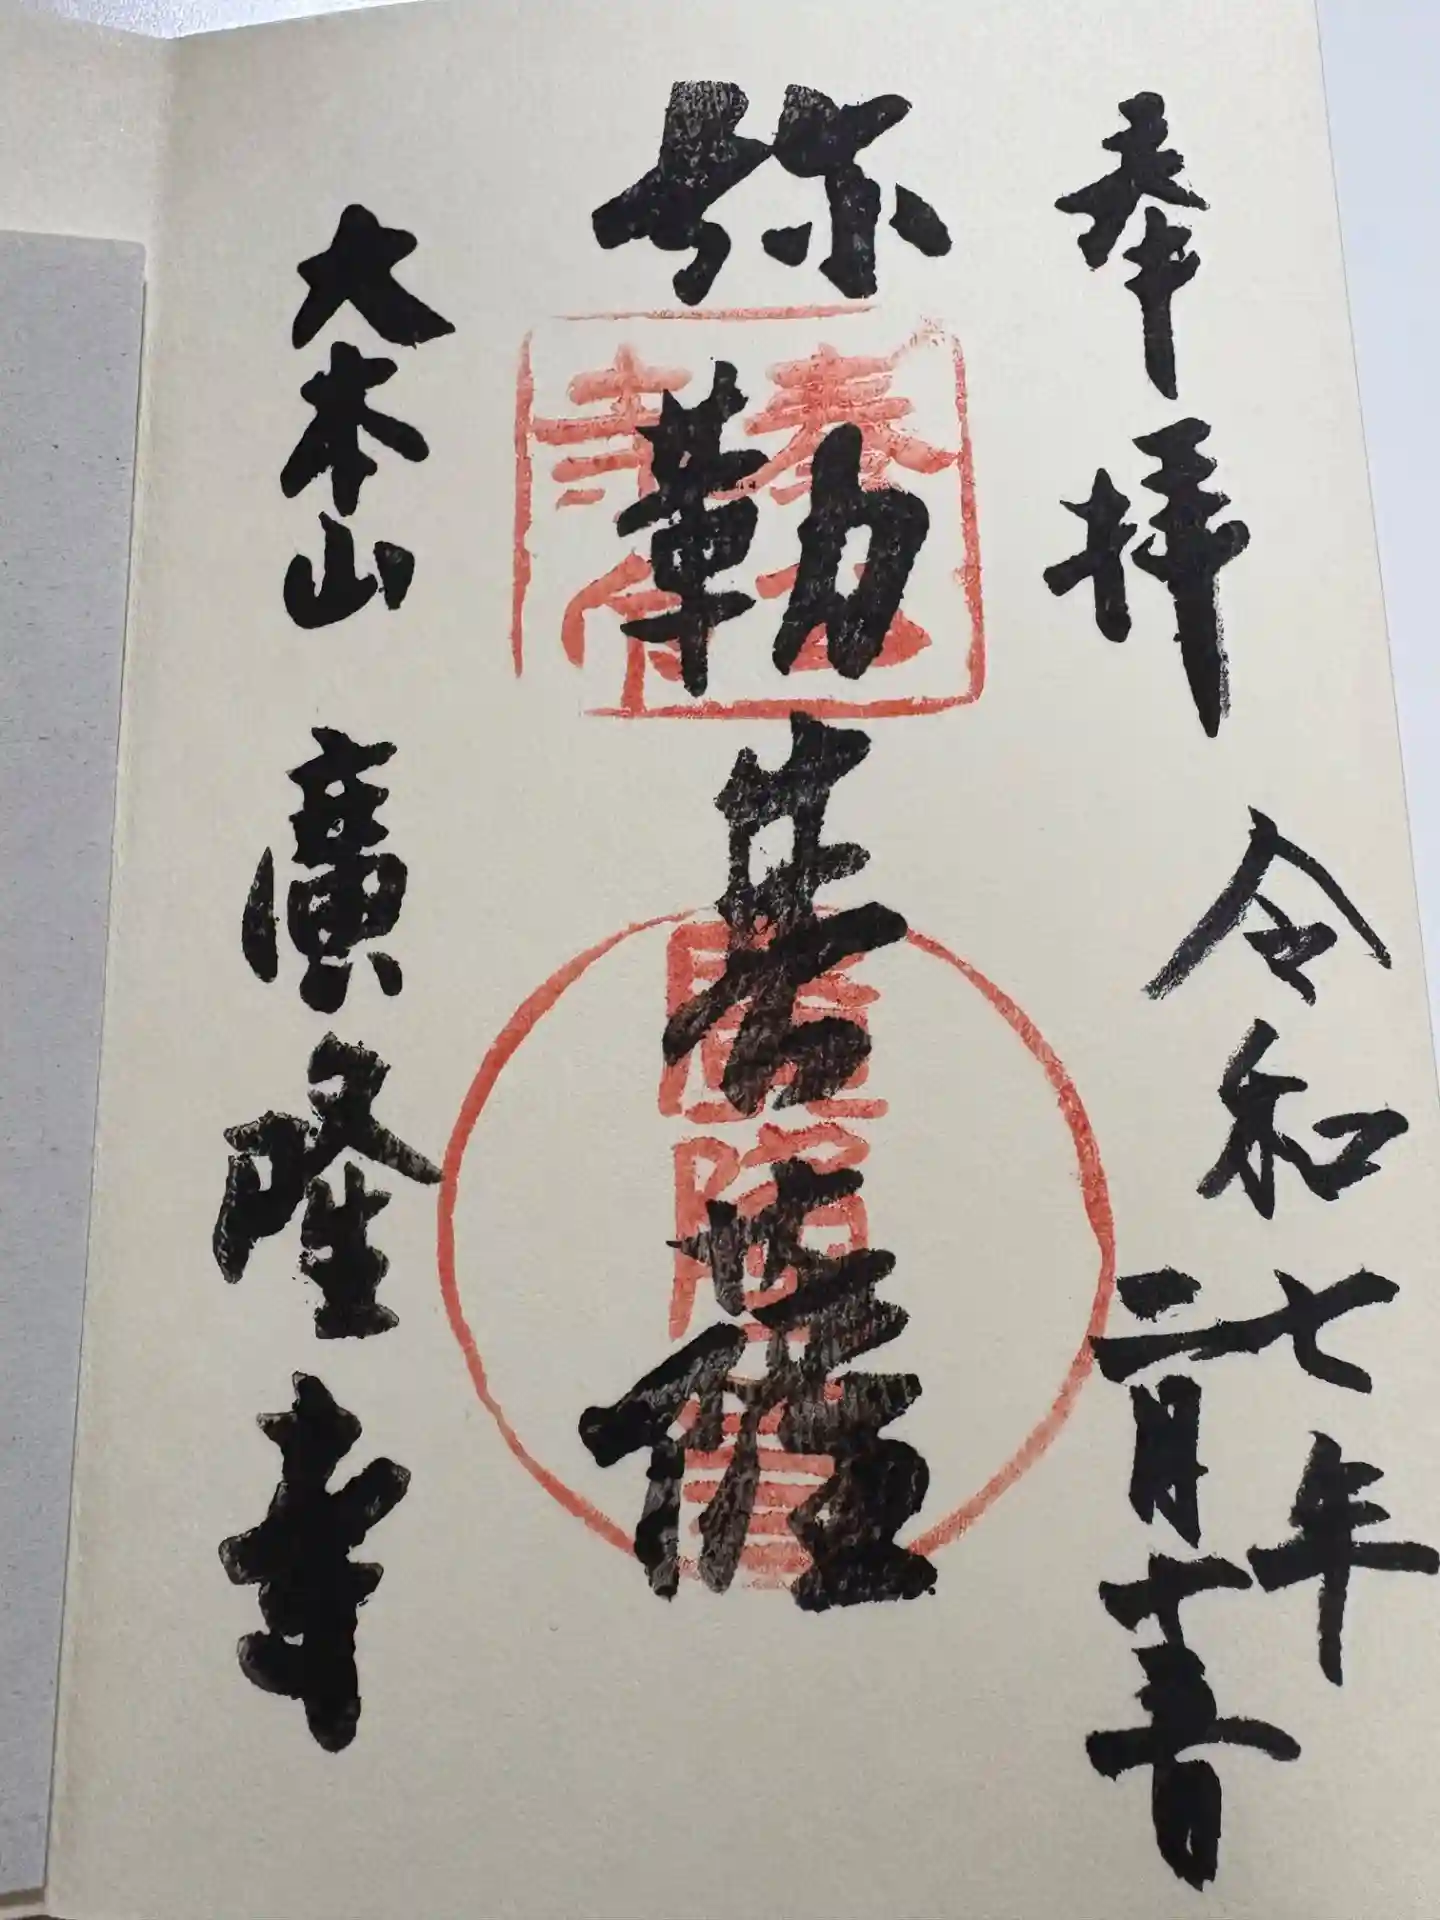 奉拝
令和七年
二月十五日
弥勒菩薩
大本山 廣隆寺
秦公
寺印